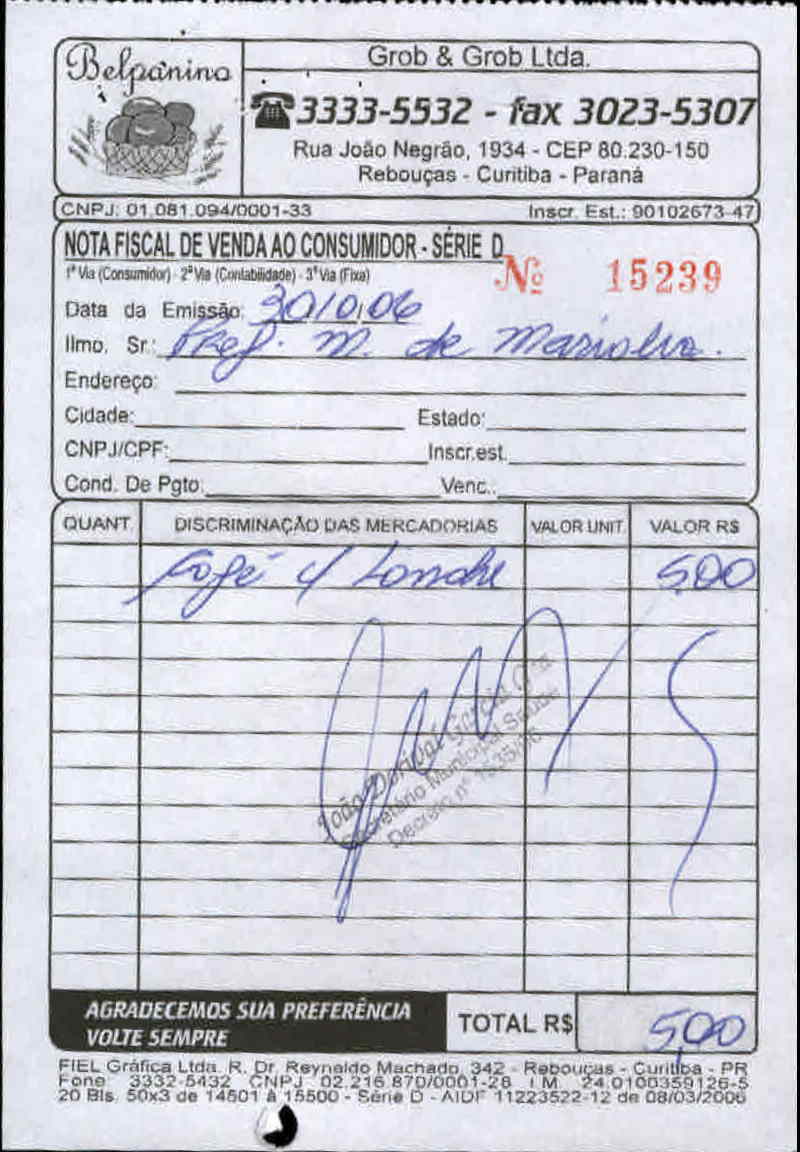 Belpanino
Grob & Grob Ltda.
☎3333-5532 - fax 3023-5307
Rua João Negrão, 1934 - CEP 80.230-150
Rebouças - Curitiba - Paraná
CNPJ: 01.081.094/0001-33 Inscr. Est.: 90102673-47
NOTA FISCAL DE VENDA AO CONSUMIDOR - SÉRIE D
1ª Via (Consumidor) - 2ª Via (Contabilidade) - 3ª Via (Fixa)
Nº 15239
Data da Emissão: 30/0/06
Ilmo. Sr.: Pref. M. de Marialva.
Endereço:
Cidade: Estado:
CNPJ/CPF: Inscr.est.
Cond. De Pgto: Venc.:
QUANT. DISCRIMINAÇÃO DAS MERCADORIAS VALOR UNIT. VALOR R$
Café c/ Lanche 5,00
João Dorival Garcia
Secretário Municipal Saúde
Decreto nº
AGRADECEMOS SUA PREFERÊNCIA
VOLTE SEMPRE
TOTAL R$ 5,00
FIEL Gráfica Ltda. R. Dr. Reynaldo Machado, 342 - Rebouças - Curitiba - PR
Fone 3332-5432 CNPJ 02.216.870/0001-28 I.M. 24.0100359126-5
20 Bls. 50x3 de 14501 à 15500 - Série D - AIDF 11223522-12 de 08/03/2006